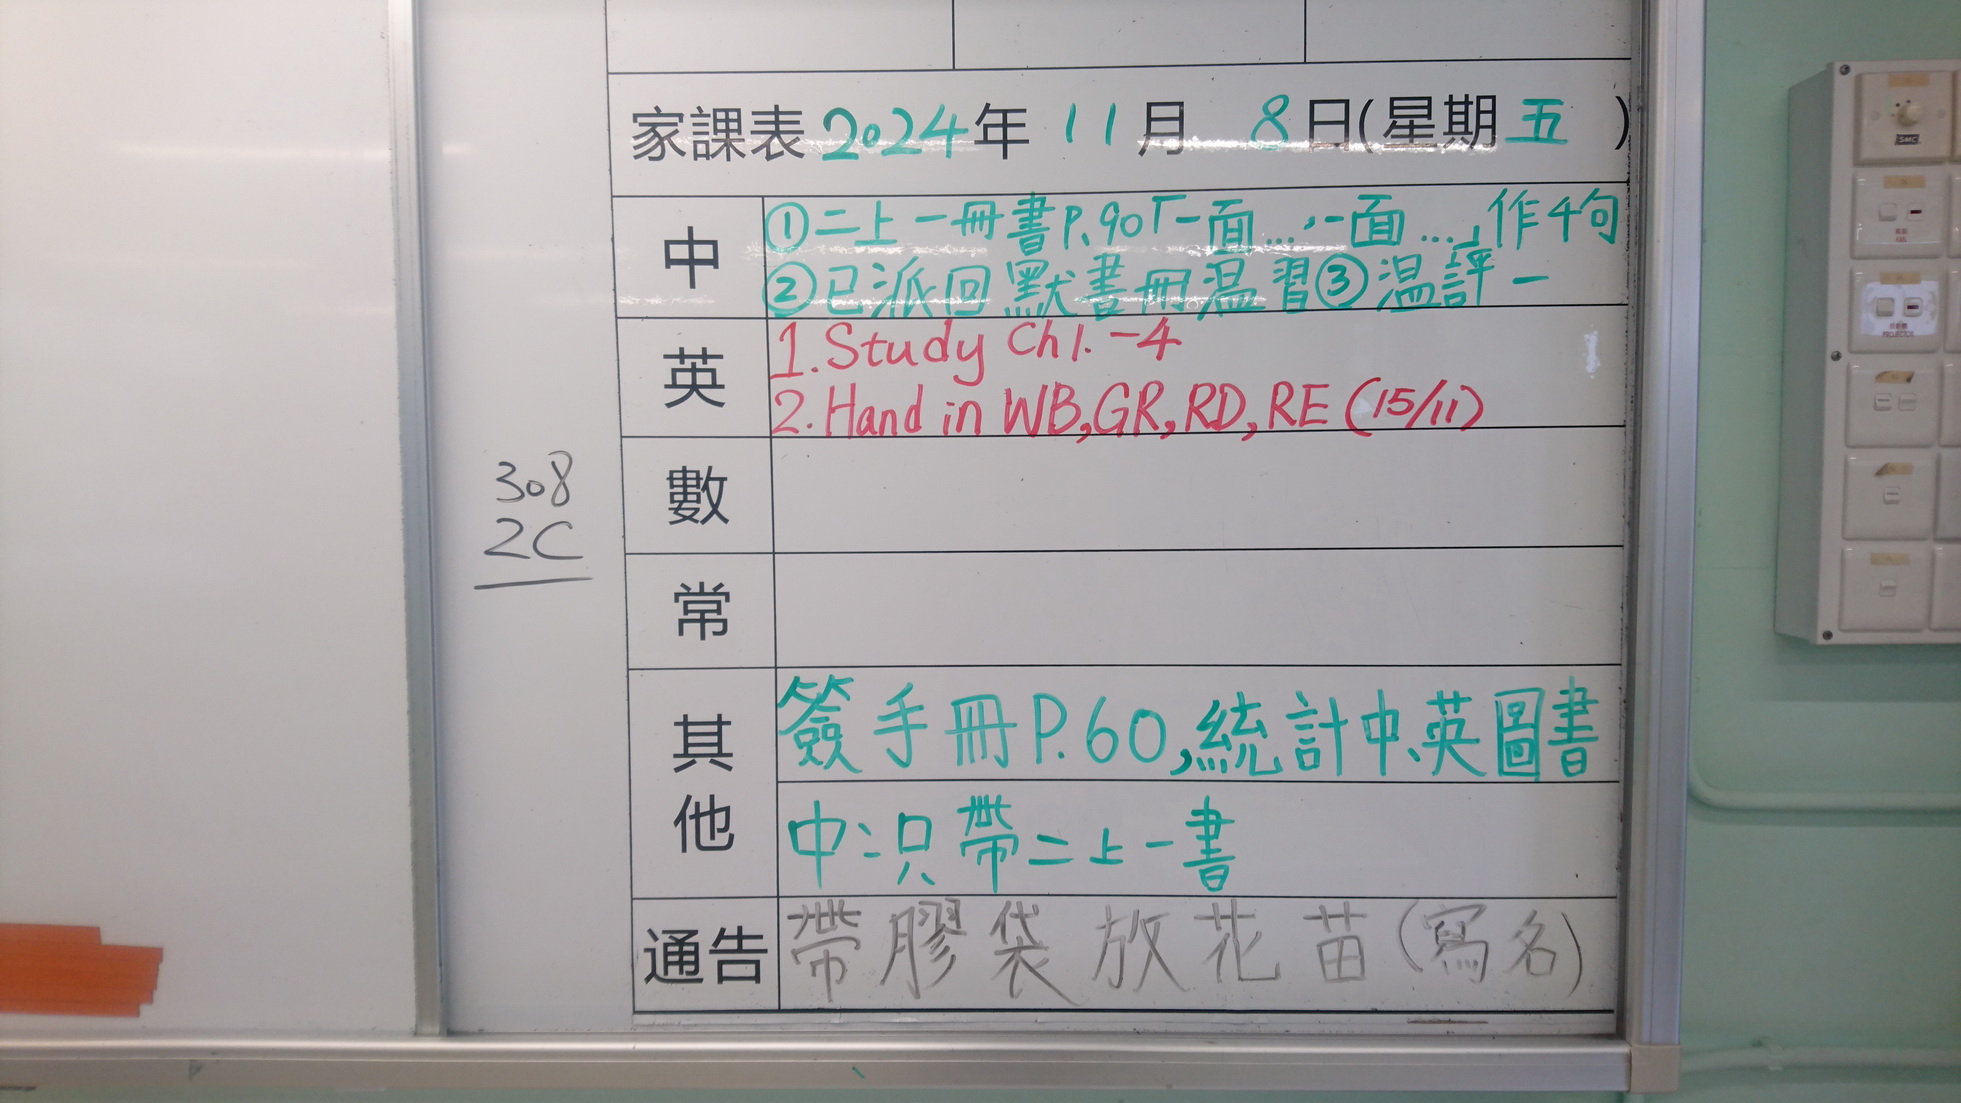 家課表2024年 11月 8日(星期五 )
中
①二上一冊書P.90「一面…,一面…」作4句
②已派回默書冊温習③温評一
英
1.Study Ch1.-4
2.Hand in WB,GR,RD,RE (15/11)
308
2C
數
常
其他
簽手冊P.60,統計中、英圖書
中:只帶二上一書
通告
帶膠袋放花苗(寫名)